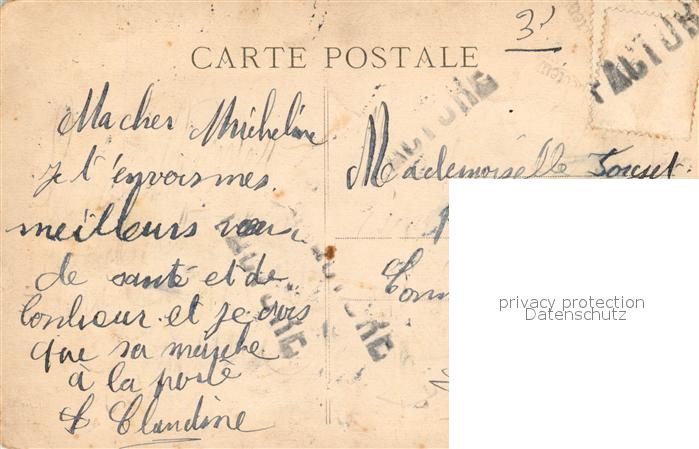 3
CARTE POSTALE
FACTURE
FACTURE
Ma cher Micheline
je t'envois mes
meilleurs veux
de santé et de
bonheur et je vois
que sa marche
à la poste
Claudine
Mademoiselle Jouset
privacy protection
Datenschutz